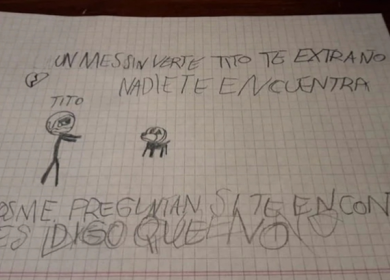 UN MES SIN VERTE TITO TE EXTRAÑO
NADIE TE ENCUENTRA
TITO
ME PREGUNTAN SI TE ENCON
DIGO QUE NO